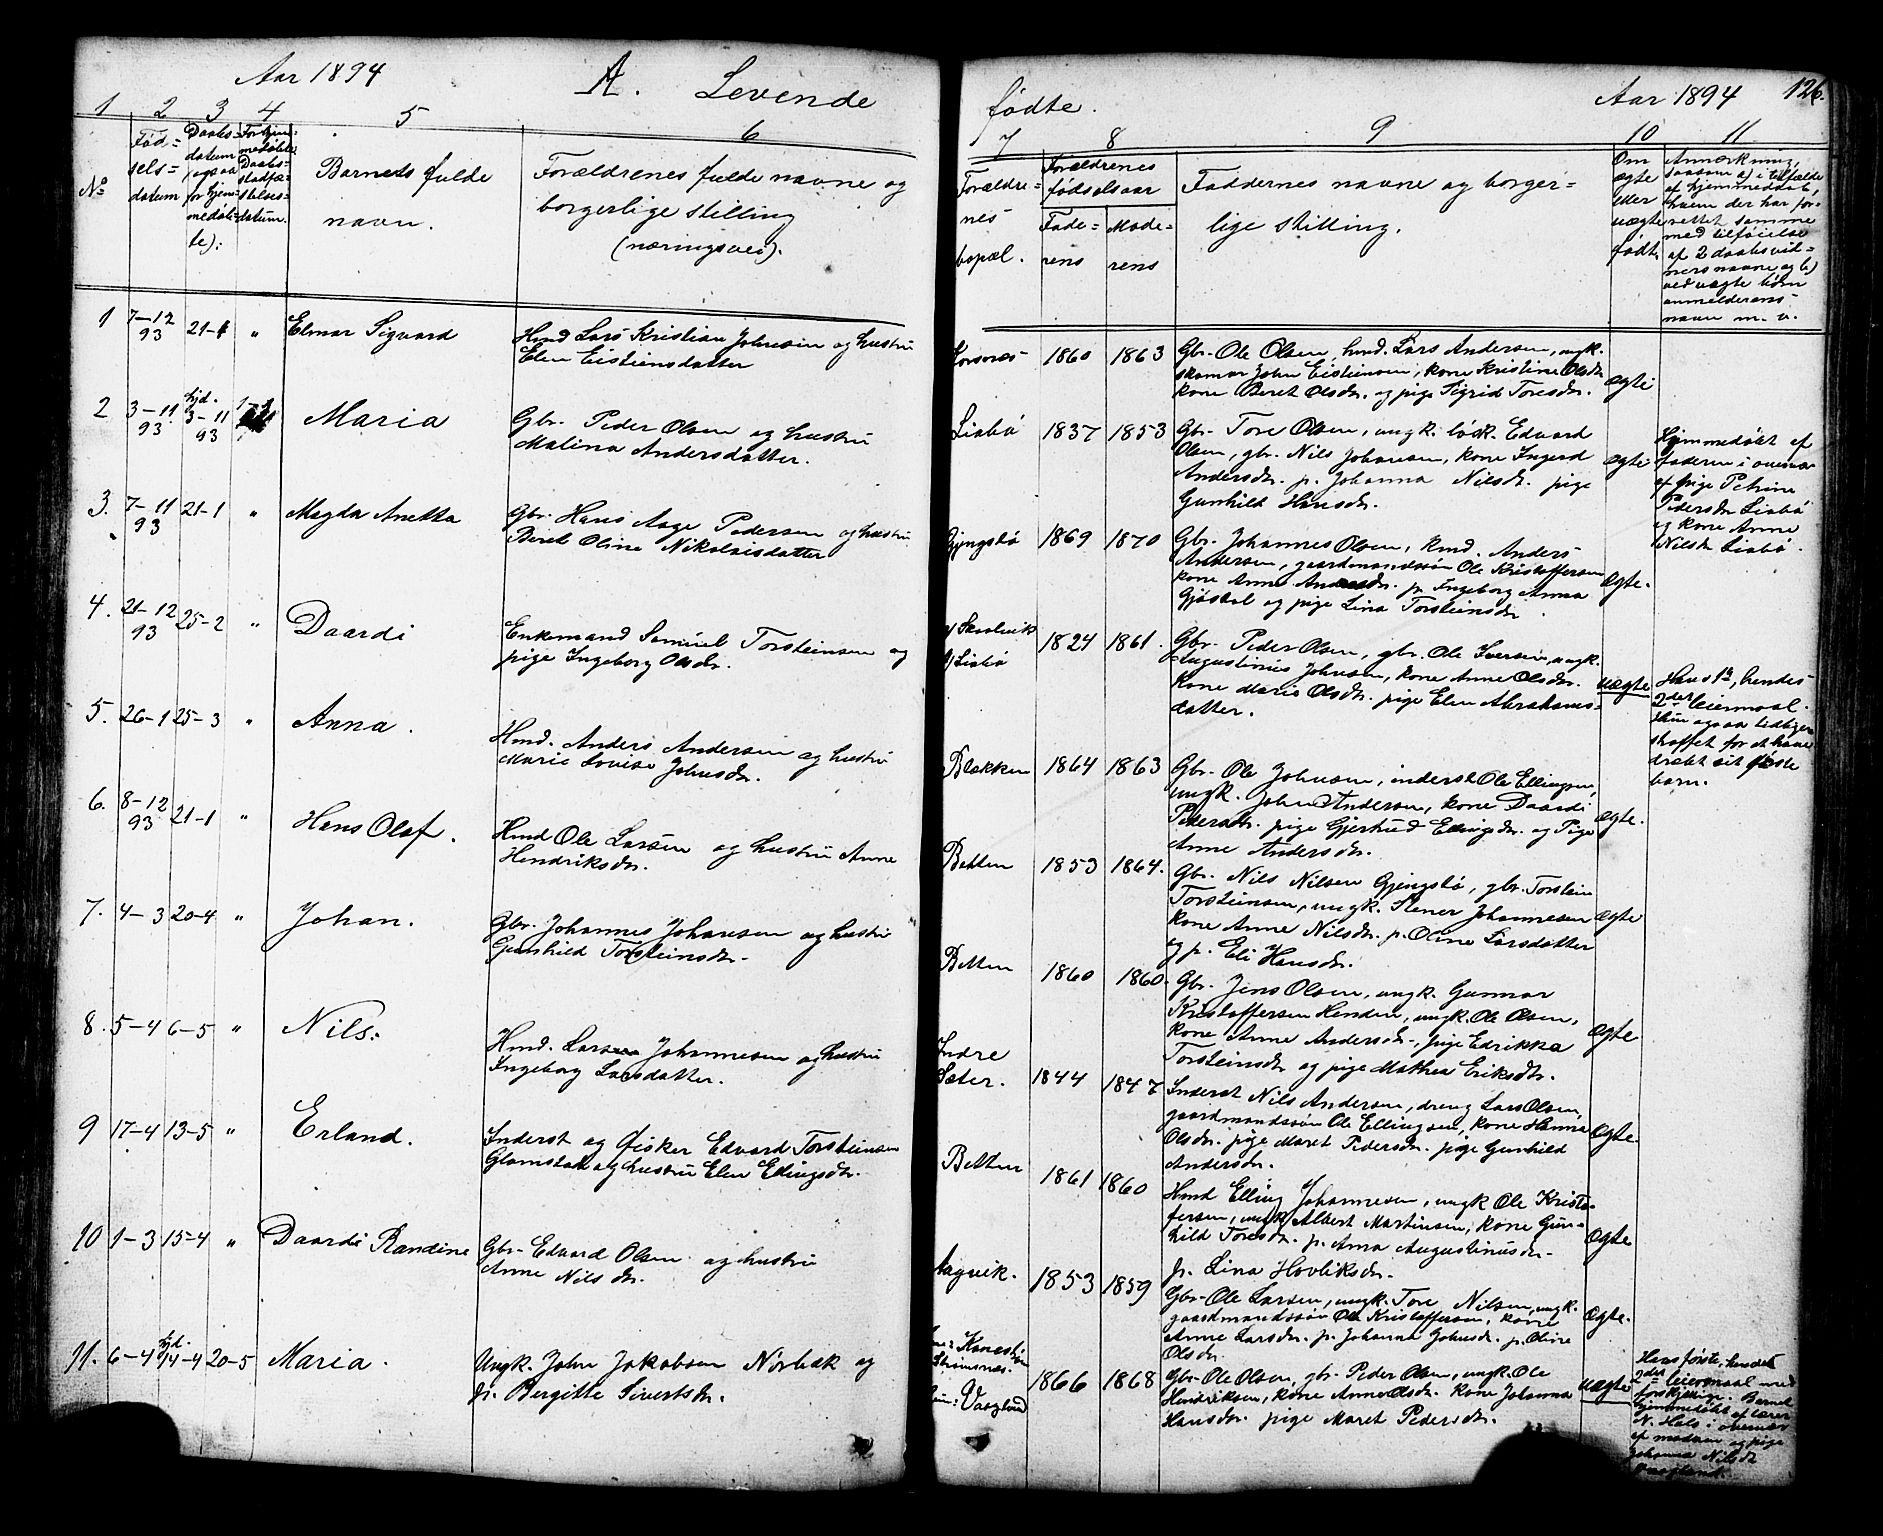 Aar 1894
A. Levende
1 2 3 4 5 6
№
Fød=
sels=
datum
Daabs=
datum
(ogsaa
for hjem=
medøb=
te):
Daabs=
stadfæ=
stelses=
datum.
Barnets fulde
navn.
Forældrenes fulde navne og
borgerlige stilling
(næringsvei).
1 7-12 93 21-1 " Elmar Sigvard
Hmd Lars Kristian Johnsen og hustru
Elen Eistiensdatter
2 3-11 93 hjd. 3-11 93
Maria
Gbr. Peder Olsen og hustru
Malina Andersdatter.
3. 7-11 93 21-1 " Magda Anetta
Gbr. Hans Aage Pedersen og hustru
Beret Oline Nikolaisdatter
4. 21-12 93 25-2 " Daardi
Enkemand Samuel Torsteinsen og
pige Ingeborg Olsdr.
5. 26-1 25-3 " Anna.
Hmd. Anders Andersen og hustru
Marie Lovise Johnsdr.
6. 8-12 93 21-1 " Hans Olaf.
Hmd Ole Larsen og hustru Anne
Hendriksdr.
7. 4-3 20-4 " Johan.
Gbr. Johannes Johansen og hustru
Gunhild Torsteinsdr.
8. 5-4 6-5 " Nils.
Hmd. Lars Johannesen og hustru
Ingeborg Larsdatter.
9 17-4 13-5 " Erland.
Inderst og fisker Edvard Torsteinsen
Glamstad og hustru Elen Ellingsdr.
10 1-3 15-4 " Daardi Randine
Gbr. Edvard Olsen og hustru
Anne Nilsdr.
11. 6-4 hjd. 14-4 20-5 Maria.
Ungk. John Jakobsen Norbæk og
p. Bergitte Sivertsdr.
fødte.
Aar 1894 126.
7 8 9 10 11
Forældre=
nes
bopæl.
Forældrenes
fødselsaar
Fade=
rens
Mode=
rens
Faddernes navne og borger=
lige stilling.
Om
ægte
eller
uægte
født.
Anmærkning,
saasom a) i tilfælde
af hjemmedaab,
hvem der har for=
rettet samme
med tilføielse
af 2 daabsvid=
ners navne og b)
ved uægte børn
anmelderens
navn m. v.
Korsnes 1860 1863
Gbr. Ole Olsen, hmd. Lars Andersen, ungk.
skomar John Eistiensen, kone Kristine Olsdr.
kone Beret Olsdr. og pige Sigrid Toresdr.
ægte
Liabø 1837 1853
Gbr. Tore Olsen, ungk. løsk. Edvard
Olsen, gbr. Nils Johansen, kone Ingerd
Andersdr. p. Johanna Nilsdr. pige
Gunhild Hansdr.
ægte
Hjemmedøbt af
faderen i overvær
af pige Petrine
Pedersdr Liabø
og kone Anne
Nilsdr Liabø.
Gjengstø 1869 1870
Gbr. Johannes Olsen, hmd. Anders
Andersen, gaardmandssøn Ole Kristoffersen
kone Anne Andersdr. p. Ingeborg Anna
Gjøstøl og pige Lina Torsteinsdr.
ægte.
Skaalvik
Liabø
1824 1861.
Gbr. Peder Olsen, gbr. Ole Iversen, ungk.
Augustinus Johnsen, kone Anne Olsdr.
kone Marie Olsdr. pige Elen Abrahams=
datter.
uægte
Hans 1ste, hendes
2det leiermaal.
Hun ogsaa tidligere
straffet for at have
dræbt sit første
barn.
Blækken 1864 1863
Gbr. Ole Johnsen, inderst Ole Ellingsen,
ungk. John Andersen, kone Daardi
Pedersdr. pige Gjertrud Ellingsdr. og Pige
Anne Andersdr.
ægte.
Betten 1853 1864.
Gbr. Nils Nilsen Gjengstø, gbr. Torstein
Torsteinsen, ungk. Stener Johannesen
kone Anne Nilsdr. p. Oline Larsdatter
og p. Eli Hansdr.
ægte
Betten 1860 1860.
Gbr. Jens Olsen, ungk. Gunnar
Kristoffersen Henden, ungk. Ole Olsen,
kone Anne Andersdr., pige Edrikka
Torsteinsdr og pige Mathea Eriksdr.
ægte
Indre
Sæter. 1844 1847
Inderst Nils Andersen, dreng Lars Olsen,
gaardmandssøn Ole Ellingsen, kone Hanna
Olsdr. pige Maret Pedersdr. pige Gunhild
Andersdr.
ægte.
Betten 1861 1860
Hmd Elling Johannesen, ungk Ole Kristo=
fersen, ungk Albert Martinsen, kone Gun=
hild Toresdr. p. Anna Augustinusdr.
p. Lina Hovliksdr.
ægte
Aagvik. 1853 1859
Gbr. Ole Larsen, ungk. Tore Nilsen, ungk.
gaardmandssøn Ole Kristoffersen, kone
Anne Larsdr. p. Johanna Johnsdr. p. Oline
Olsdr.
ægte.
Strømsnes.
1866 1868
Gbr. Ole Olsen, gbr. Peder Olsen, ungk. Ole
Hendriksen, kone Anne Olsdr. kone Johanna
Hansdr. pige Maret Pedersdr.
uægte
Hans første, hendes
2det leiermaal med
forskjellige. Barnet
hjemmedøbt af lærer
N. Hals i overvær
af madam og pige
Johanna Nilsdr